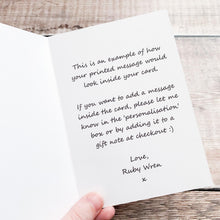 This is an example of how
your printed message would
look inside your card.
If you want to add a message
inside the card, please let me
know in the 'personalisation'
box or by adding it to a
gift note at checkout :)
Love,
Ruby Wren
x